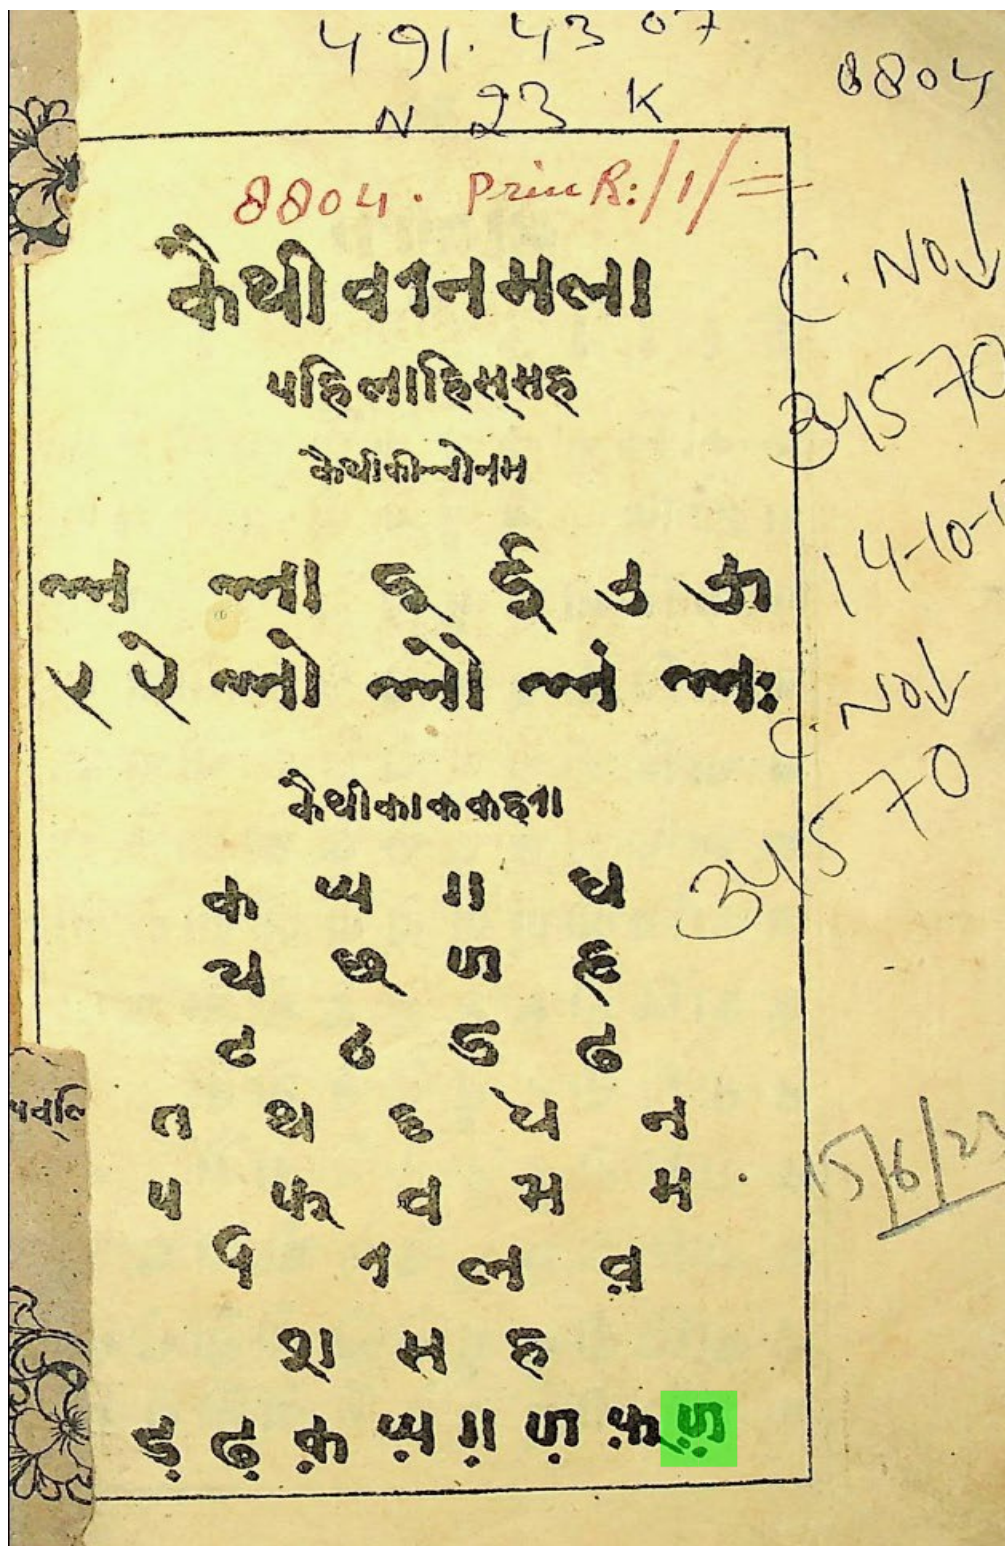 491.4307
N 23 K
8804
8804. Price R:/1/=
𑂍𑂶𑂟𑂲 𑂥𑂩𑂢𑂧𑂪𑂰
𑂣𑂯𑂱𑂪𑂰𑂯𑂱𑂮𑂹𑂮𑂯
𑂍𑂶𑂟𑂲𑂍𑂲𑂋𑂢𑂧
𑂃 𑂄 𑂅 𑂆 𑂇 𑂈
𑂉 𑂊 𑂋 𑂌 𑂃𑂁 𑂃𑂂
𑂍𑂶𑂟𑂲𑂍𑂰𑂍𑂍𑂯𑂩𑂰
𑂍 𑂎 𑂏 𑂐
𑂒 𑂓 𑂔 𑂕
𑂗 𑂘 𑂙 𑂛
𑂞 𑂟 𑂠 𑂡 𑂢
𑂣 𑂤 𑂥 𑂦 𑂧
𑂨 𑂩 𑂪 𑂫
𑂬 𑂮 𑂯
𑂚 𑂜 𑂍𑂺 𑂎𑂺 𑂏𑂺 𑂔𑂺 𑂤𑂺 𑂔𑂺
C. No
34570
C. No
34570